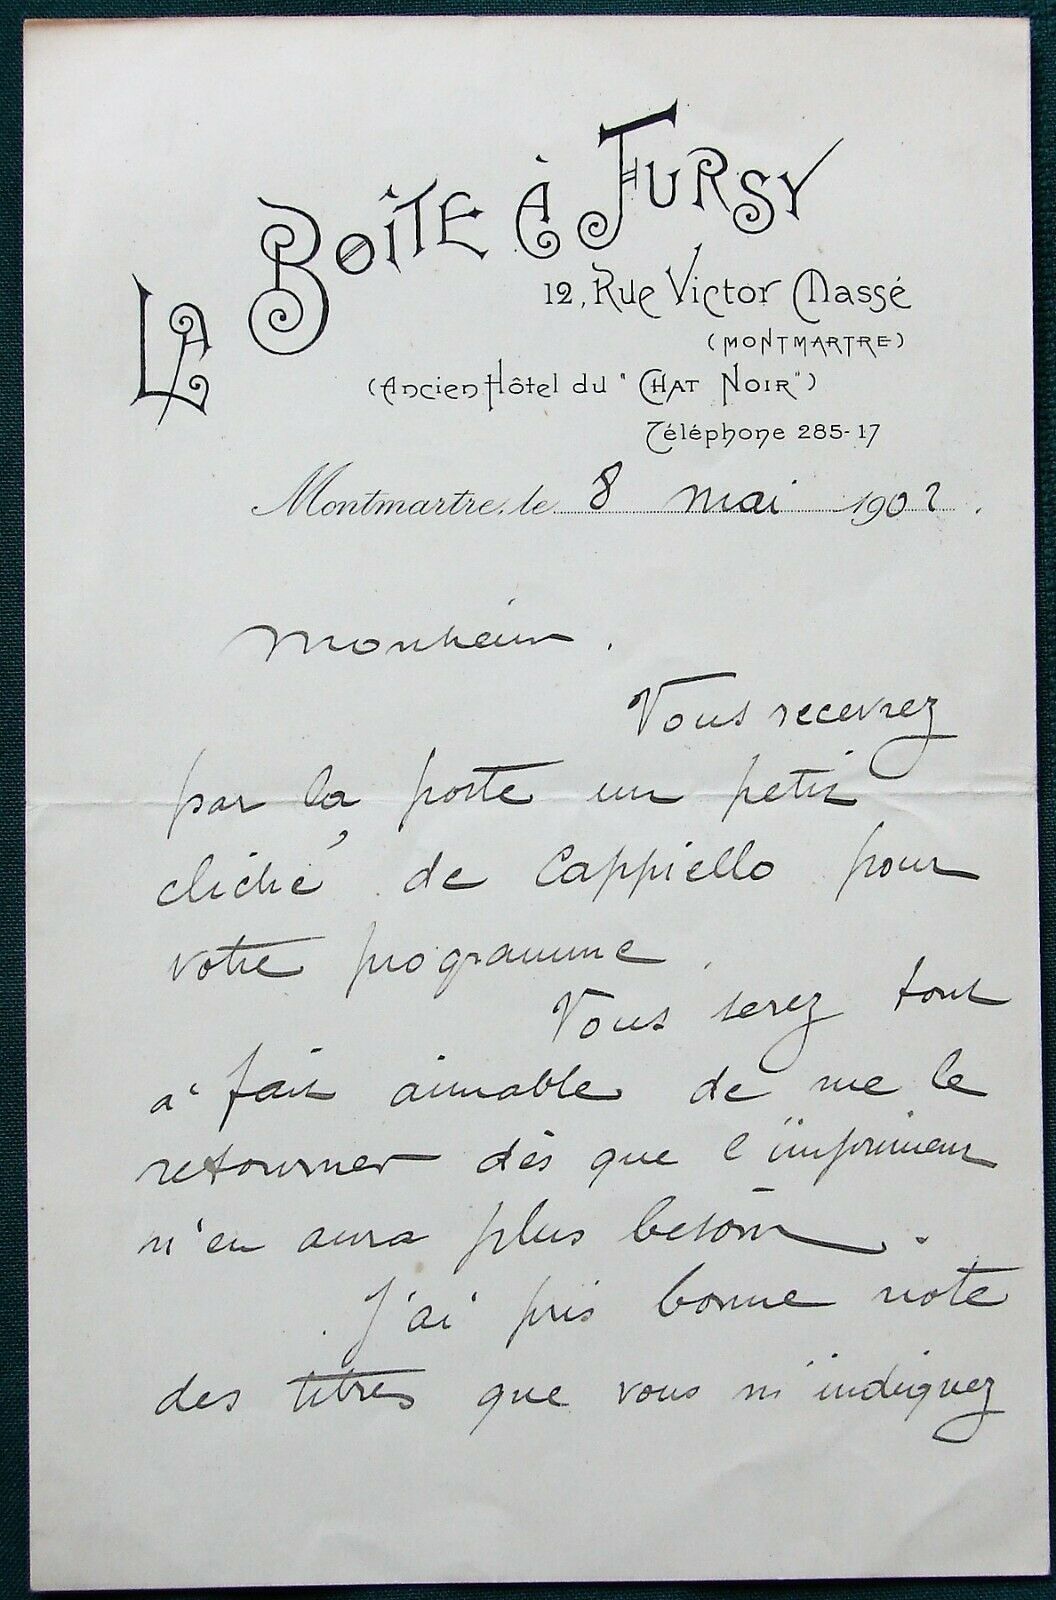 La Boîte à Fursy
12, Rue Victor Massé
(Montmartre)
(Ancien Hôtel du "Chat Noir")
Téléphone 285-17
Montmartre, le 8 mai 1902.
Monsieur.
Vous recevrez
par la poste un petit
cliché de Cappiello pour
votre programme.
Vous serez tout
à fait aimable de me le
retourner dès que l'imprimeur
n'en aura plus besoin.
J'ai pris bonne note
des titres que vous m'indiquez